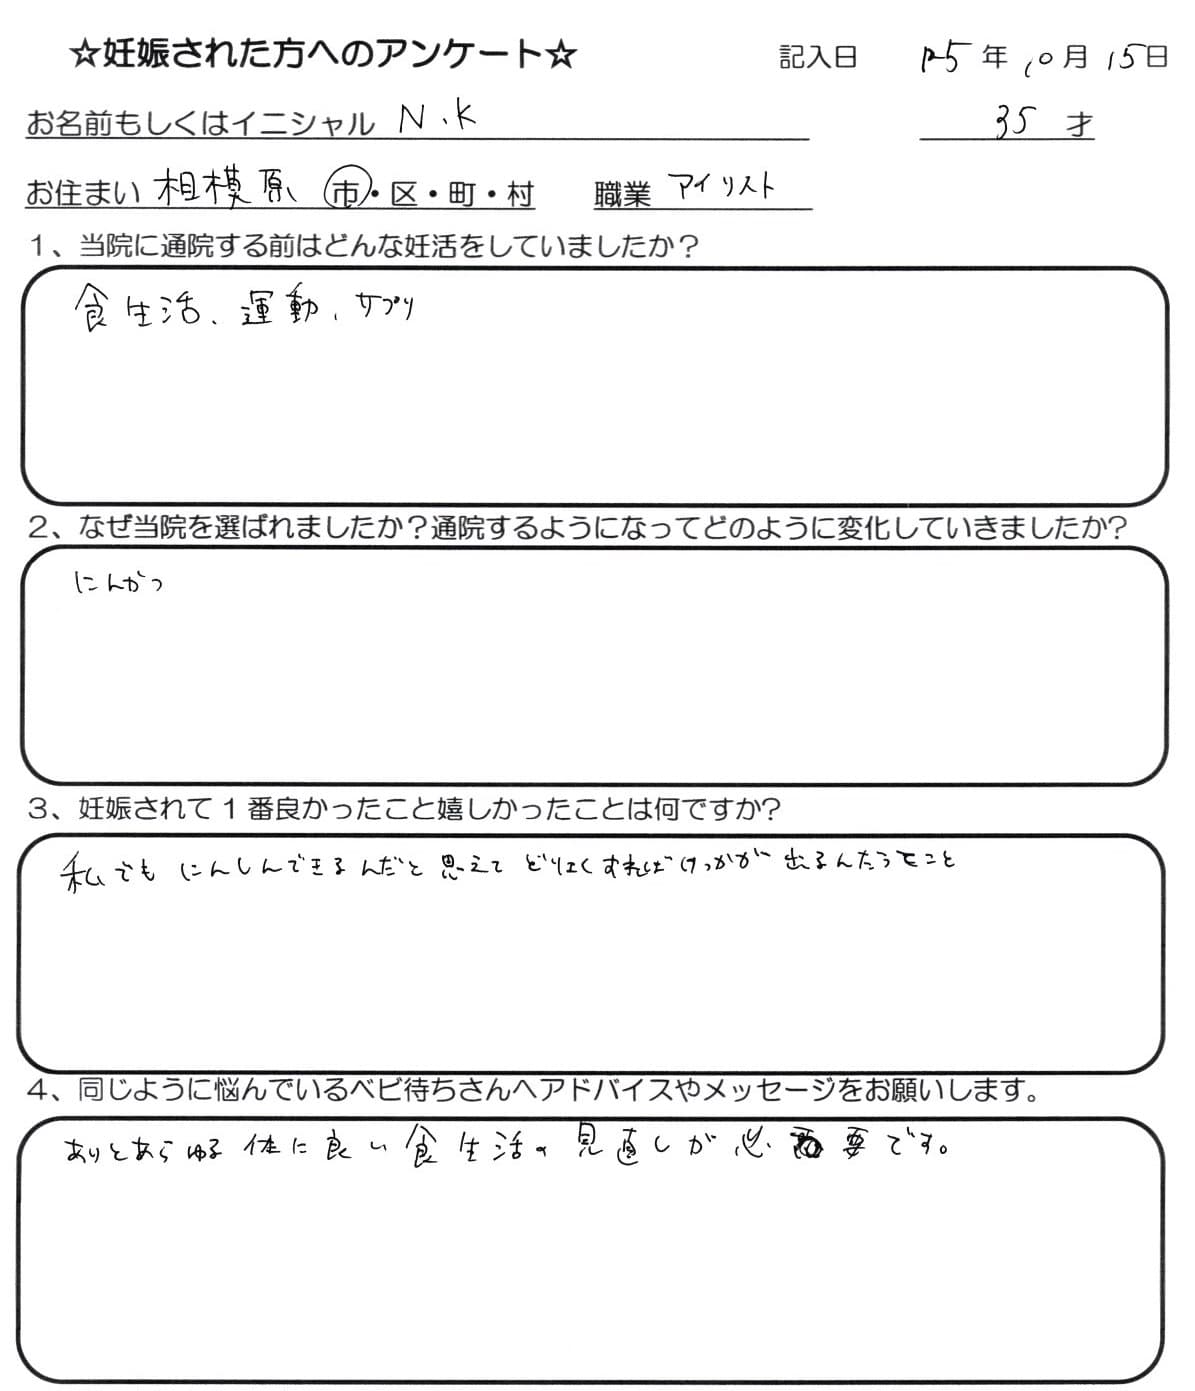 ☆妊娠された方へのアンケート☆ 記入日 R5年10月15日
お名前もしくはイニシャル N.K 35才
お住まい 相模原 市・区・町・村 職業 アイリスト
1、当院に通院する前はどんな妊活をしていましたか？
食生活、運動、サプリ
2、なぜ当院を選ばれましたか？通院するようになってどのように変化していきましたか？
にんかつ
3、妊娠されて1番良かったこと嬉しかったことは何ですか？
私でもにんしんできるんだと思えてどりょくすればけっかが出るんだってこと
4、同じように悩んでいるベビ待ちさんへアドバイスやメッセージをお願いします。
ありとあらゆる体に良い食生活の見直しが必要です。